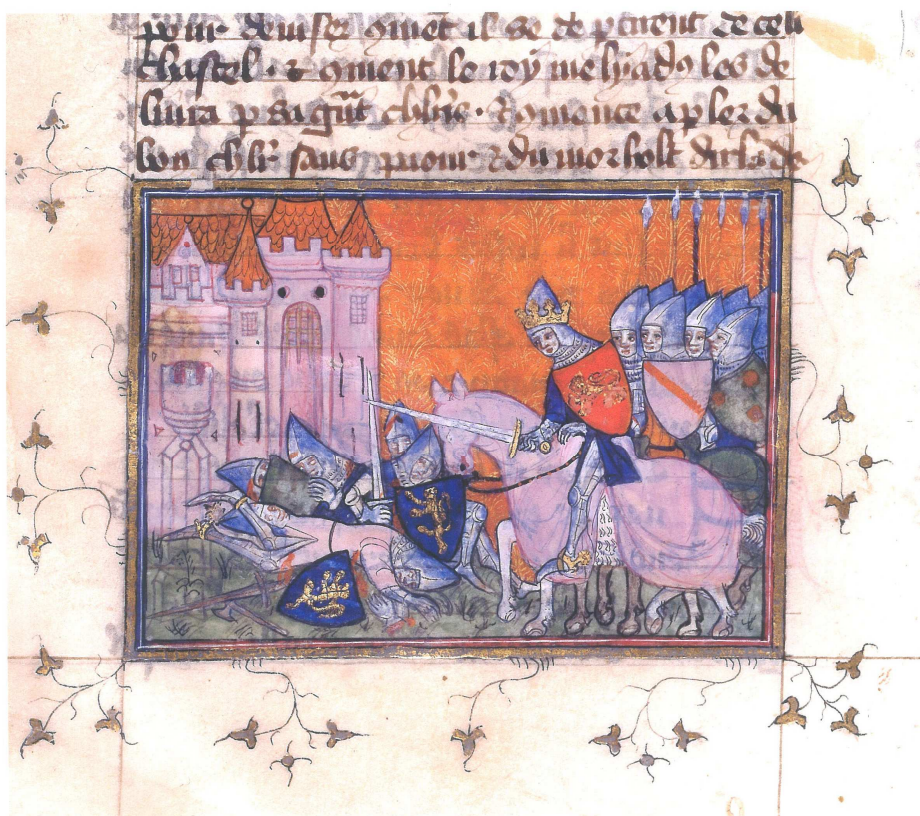 pour deuiser 9ment il se de ptirent de celi
chastel · & 9ment le roy meliado les de
liura p sa gñt chlrie · Et 9mence a pler du
bon chlr sans piour & du morholt dirlãde